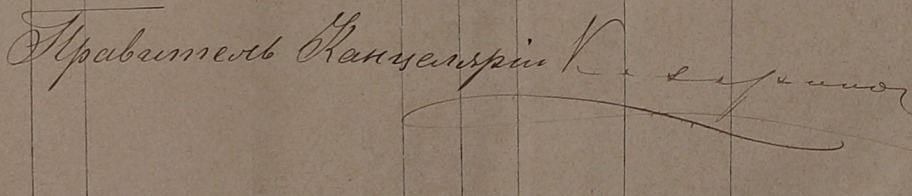 Правитель Канцелярiи